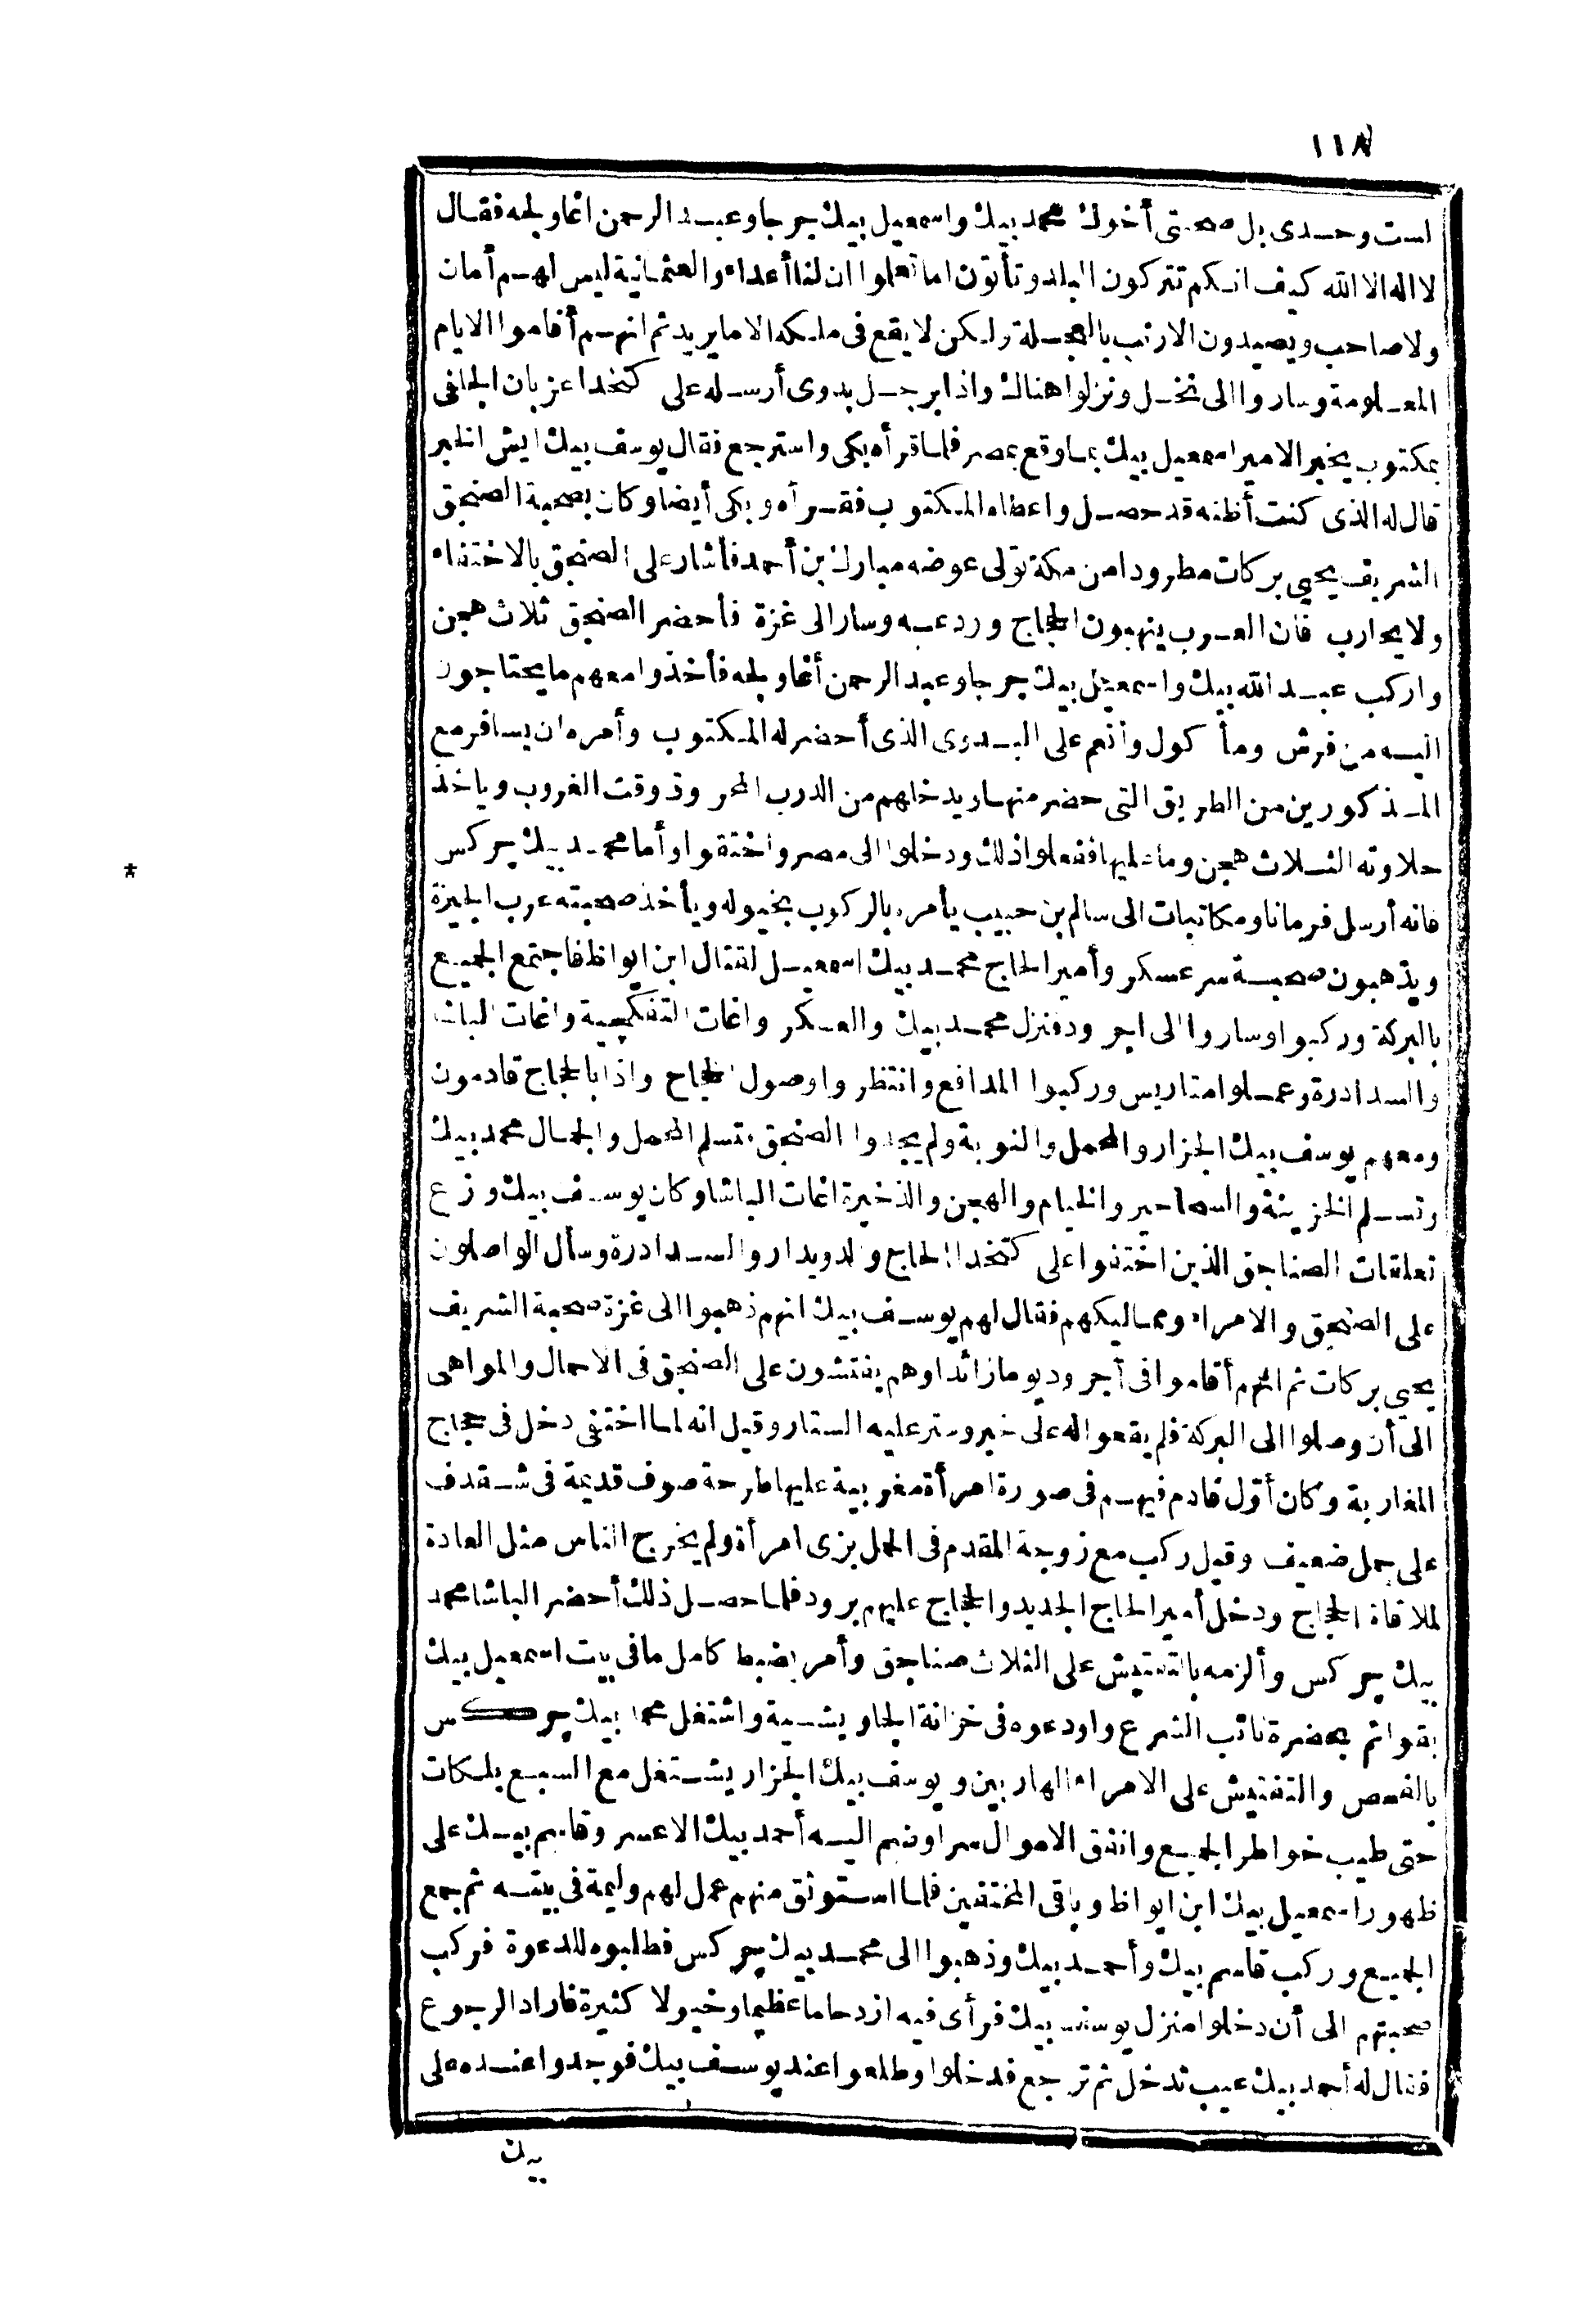 ١١٨
لست وحدى بل صحبتى أخوك محمد بيك واسمعيل بيك جرجا وعبد الرحمن اغا ولجه فقال
لا اله الا الله كيف انكم تتركون البلد وتأتون اما تعلموا ان لنا أعداء والعثمانية ليس لهم أمان
ولا صاحب ويصيدون الارنب بالعجلة ولكن لا يقع فى ملكه الا ما يريد ثم انهم أقاموا الايام
المعلومة وساروا الى نخل ونزلوا هناك واذا برجل بدوى أرسله على كتخدا عزبان الجلفى
بمكتوب يخبر الامير اسمعيل بيك بما وقع بمصر فلما قرأه بكى واسترجع فقال يوسف بيك ايش الخبر
قال له الذى كنت أظنه قد حصل واعطاه المكتوب فقرأه وبكى أيضا وكان بصحبة الصنجق
الشريف يحيى بركات مطرودا من مكة تولى عوضه مبارك بن أحمد فأشار على الصنجق بالاختفاء
ولا يحارب فان العرب ينهبون الحجاج وردعه وسار الى غزة فأحضر الصنجق ثلاث هجن
واركب عبد الله بيك واسمعيل بيك جرجا وعبد الرحمن أغا ولجه فأخذوا معهم ما يحتاجون
اليه من فرش ومأكول وانعم على البدوى الذى أحضر له المكتوب وأمره ان يسافر مع
المذكورين من الطريق التى حضر منها ويدخلهم من الدرب المحروق وقت الغروب وياخذ
حلاوته الثلاث هجن وما عليها ففعلوا ذلك ودخلوا الى مصر واختفوا وأما محمد بيك چركس
فانه أرسل فرمانا ومكاتبات الى سالم بن حبيب يأمره بالركوب بخيوله ويأخذ صحبته عرب الجيزة
ويذهبون صحبة سر عسكر وأمير الحاج محمد بيك اسمعيل لقتال ابن ايواظ فاجتمع الجميع
بالبركة وركبوا وساروا الى اجرود فنزل محمد بيك والعسكر واغات التفكچية واغات الباشا
والسدادرة وعملوا متاريس وركبوا المدافع وانتظروا وصول الحجاج واذا بالحجاج قادمون
ومعهم يوسف بيك الجزار والمحمل والنوبة ولم يجدوا الصنجق فتسلم المحمل والجمال محمد بيك
وتسلم الخزينة والسحاحير والخيام والهجن والذخيرة اغات الباشا وكان يوسف بيك وزع
تعلقات الصناجق الذين اختفوا على كتخدا الحاج والدويدار والسدادرة وسأل الواصلون
على الصنجق والامراء ومماليكهم فقال لهم يوسف بيك انهم ذهبوا الى غزة صحبة الشريف
يحيى بركات ثم انهم أقاموا فى أجرود يوما زائدا وهم يفتشون على الصنجق فى الاحمال والمواهى
الى أن وصلوا الى البركة فلم يقعوا له على خبر وستر عليه الستار وقيل انه لما اختفى دخل فى حجاج
المغاربة وكان أوّل قادم فيهم فى صورة امرأة مغربية عليها طرحة صوف قديمة فى شقدف
على جمل ضعيف وقيل ركب مع زوجة المقدم فى الحمل بزى امرأة ولم يخرج الناس مثل العادة
لملاقاة الحجاج ودخل أمير الحاج الجديد والحجاج عليهم برود فلما حصل ذلك أحضر الباشا محمد
بيك چركس وألزمه بالتفتيش على الثلاث صناجق وأمر بضبط كامل ما فى بيت اسمعيل بيك
بقوائم بحضرة نائب الشرع واودعوه فى خزانة الجاويشية واشتغل محمد بيك چركس
بالفحص والتفتيش على الامراء الهاربين ويوسف بيك الجزار يشتغل مع السبع بلكات
حتى طيب خواطر الجميع وانفق الاموال سرا وضم اليه أحمد بيك الاعسر وقاسم بيك على
ظهور اسمعيل بيك ابن ايواظ وباقى المختفين فلما استوثق منهم عمل لهم وليمة فى بيته ثم جمع
الجميع وركب قاسم بيك وأحمد بيك وذهبوا الى محمد بيك چركس فطلبوه للدعوة فركب
صحبتهم الى أن دخلوا منزل يوسف بيك فرأى فيه ازدحاما عظيما وخيولا كثيرة فاراد الرجوع
فقال له أحمد بيك عيب تدخل ثم ترجع فدخلوا وطلعوا عند يوسف بيك فوجدوا عنده على
بيك